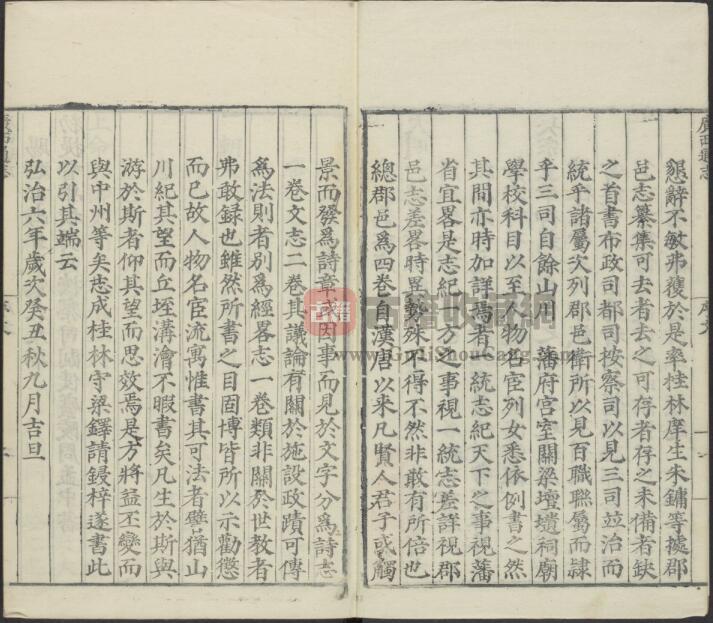 懇辭不敏弗獲於是率桂林庠生朱鏞等據郡
邑志纂集可去者去之可存者存之未備者缺
之首書布政司都司按察司以見三司竝治而
統乎諸屬次列郡邑衛所以見百職聯屬而隸
乎三司自餘山川 藩府宮室關梁壇壝祠廟
學校科目以至人物名宦列女悉依例書之然
其間亦時加詳焉者一統志紀天下之事視藩
省宜畧是志紀一方之事視一統志差詳視郡
邑志差畧時異勢殊不得不然非敢有所倍也
總郡邑爲四卷自漢唐以來凡賢人君子或觸
景而發爲詩章或因事而見於文字分爲詩志
一卷文志二卷其議論有關於施設政蹟可傳
爲法則者別爲經畧志一卷類非關於世教者
弗敢録也雖然所書之目固博皆所以示勸懲
而已故人物名宦流寓惟書其可法者譬猶山
川紀其望而丘垤溝澮不暇書矣凡生於斯與
游於斯者仰其望而思效焉是方將益丕變而
與中州等矣志成桂林守梁鐸請鋟梓遂書此
以引其端云
弘治六年歲次癸丑秋九月吉旦
古籍收藏網
www.GujiShouCang.com